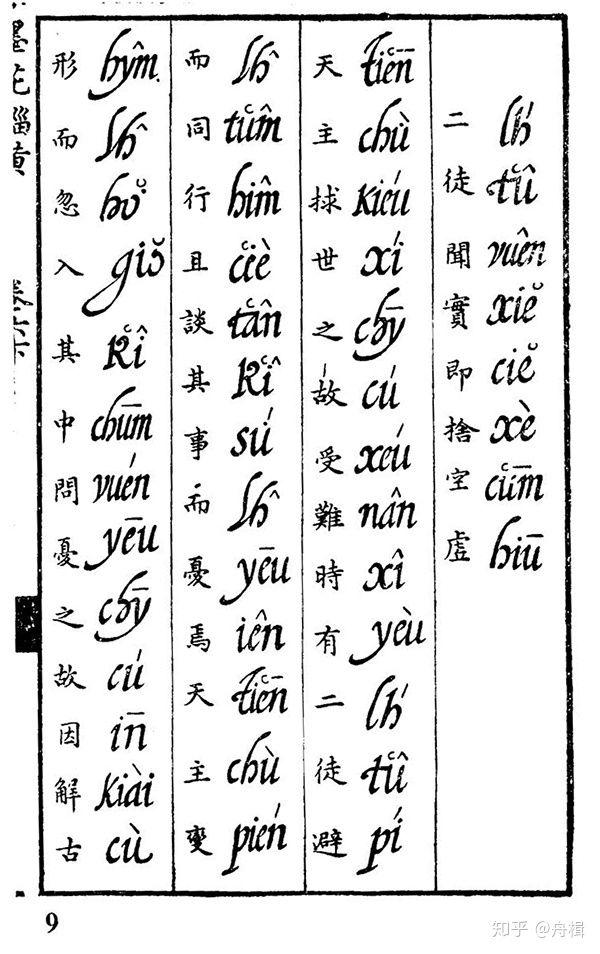 二徒聞實即捨空虛
lh́ t‘û vuên xiĕ ciĕ xè c‘ūm hiū
天主捄世之故受難時有二徒避
t‘iēn chù kiéu xí chȳ cú xeú nân xî yèu lh́ t‘û pí
而同行且談其事而憂焉天主變
lĥ t‘ûm hîm c‘iè t‘ân k‘î sú lĥ yēu iên t‘iēn chù pién
形而忽入其中問憂之故因解古
hŷm. lĥ hŏ giŏ k‘î chūm vuén yēu chȳ cú īn kiài cù
9
知乎 @舟楫